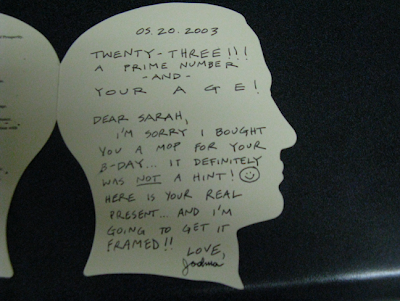 05.20.2003
TWENTY-THREE!!!
A PRIME NUMBER
-AND-
YOUR AGE!
DEAR SARAH,
I'M SORRY I BOUGHT
YOU A MOP FOR YOUR
B-DAY... IT DEFINITELY
WAS NOT A HINT! ☺
HERE IS YOUR REAL
PRESENT... AND I'M
GOING TO GET IT
FRAMED!!
LOVE,
Joshua